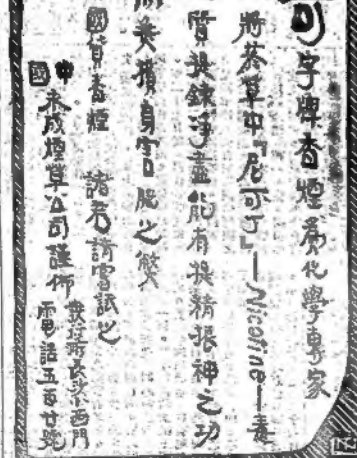 司字牌香煙為化學專家
將菸草中『尼可丁』—Nicotine—毒
質提鍊淨盡能有提精振神之功
無喪損身害腦之獘
國貨香煙 諸君請嘗試之
中國
未成煙草公司謹佈
發行所長沙西門
電話五百廿號